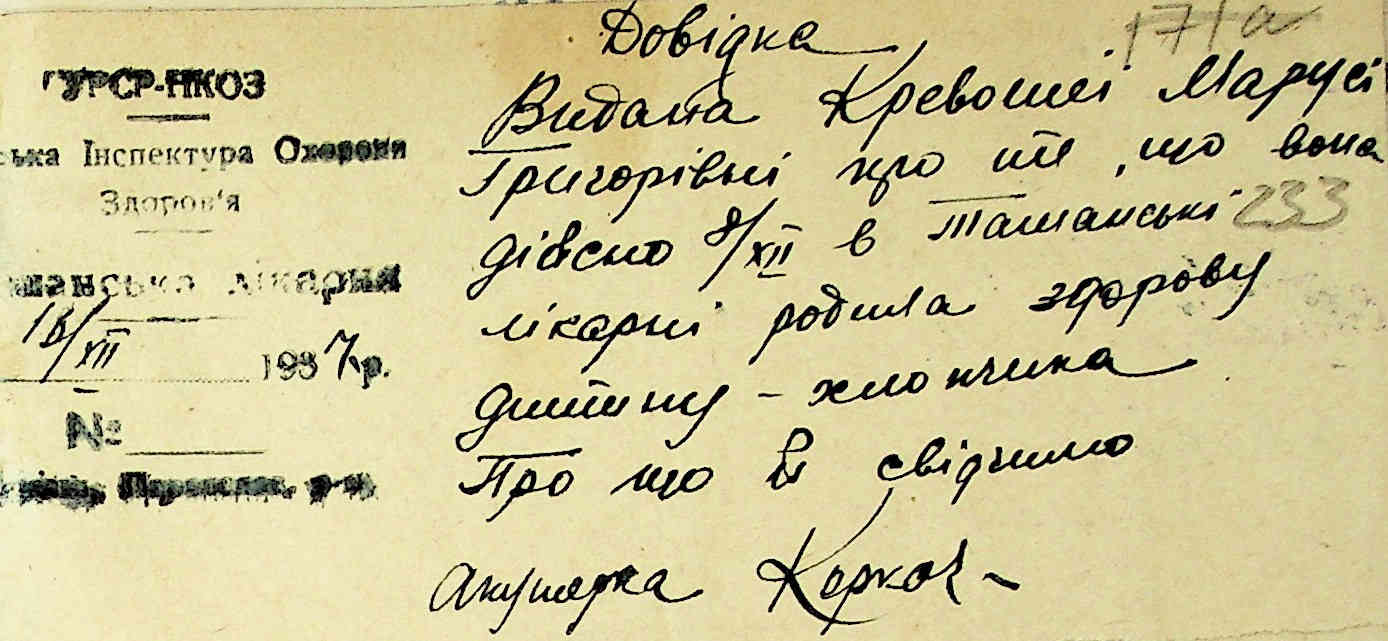 Довідка
171а
УРСР-НКОЗ
ська Інспектура Охорони
Здоров'я
шанська лікарня
16/XII 1937 р.
№
Видана Кревошиї Марусі
Григорівні про те, що вона
дійсно 8/XII в Ташанські
233
лікарні родила здорову
дитину - хлопчика
Про що й свідчимо
Акушерка